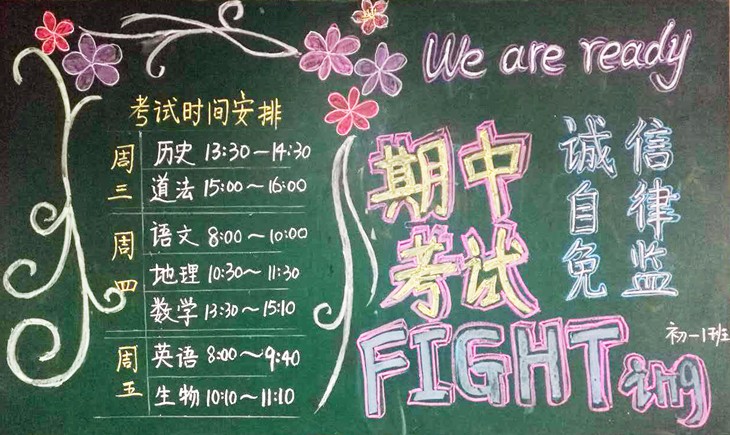 考试时间安排
周三
历史 13:30—14:30
道法 15:00~16:00
周四
语文 8:00~10:00
地理 10:30~11:30
数学 13:30~15:10
周五
英语 8:00~9:40
生物 10:10~11:10
We are ready
期中
考试
FIGHTing
诚信
自律
免监
初一1班